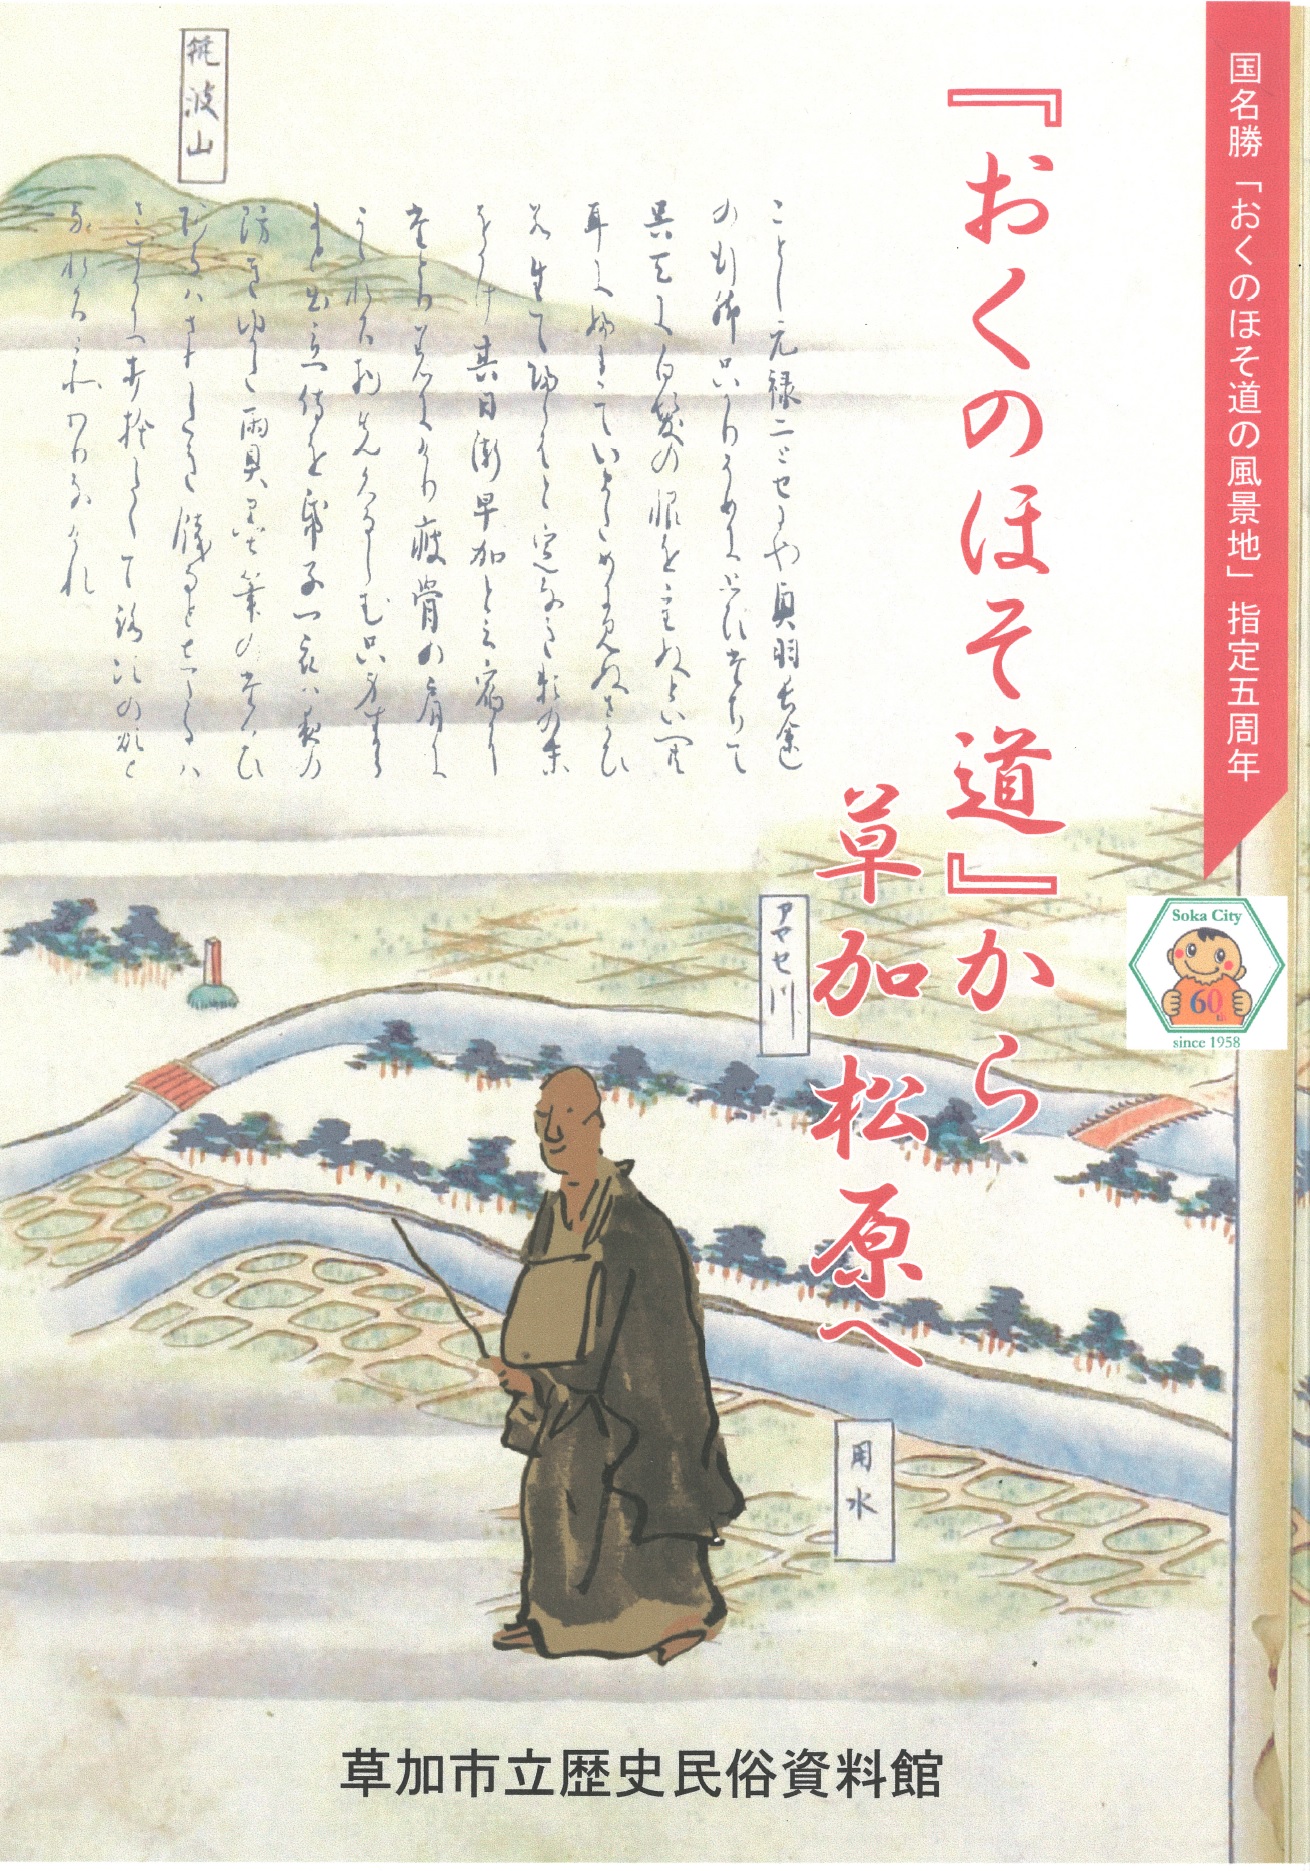 国名勝「おくのほそ道の風景地」指定五周年
『おくのほそ道』から
草加松原へ
ことし元禄二とせにや奥羽長途
の行脚只かりそめに思ひたちて
呉天に白髪の恨を重ぬといへ共
耳にふれていまために見ぬさかひ
若生て帰らはと定なき頼の末
をかけ其日漸早加と云宿に
たとり着にけり痩骨の肩に
かゝれる物先くるしむ只身すから
にと出立侍を帋子一衣ハ夜の
防きゆかた雨具墨筆のたくひ
あるハさりかたき餞なとしたるハ
さすかに打捨かたくて路次の煩と
なれるこそわりなけれ
筑波山
アヤセ川
用水
Soka City
60th
since 1958
草加市立歴史民俗資料館